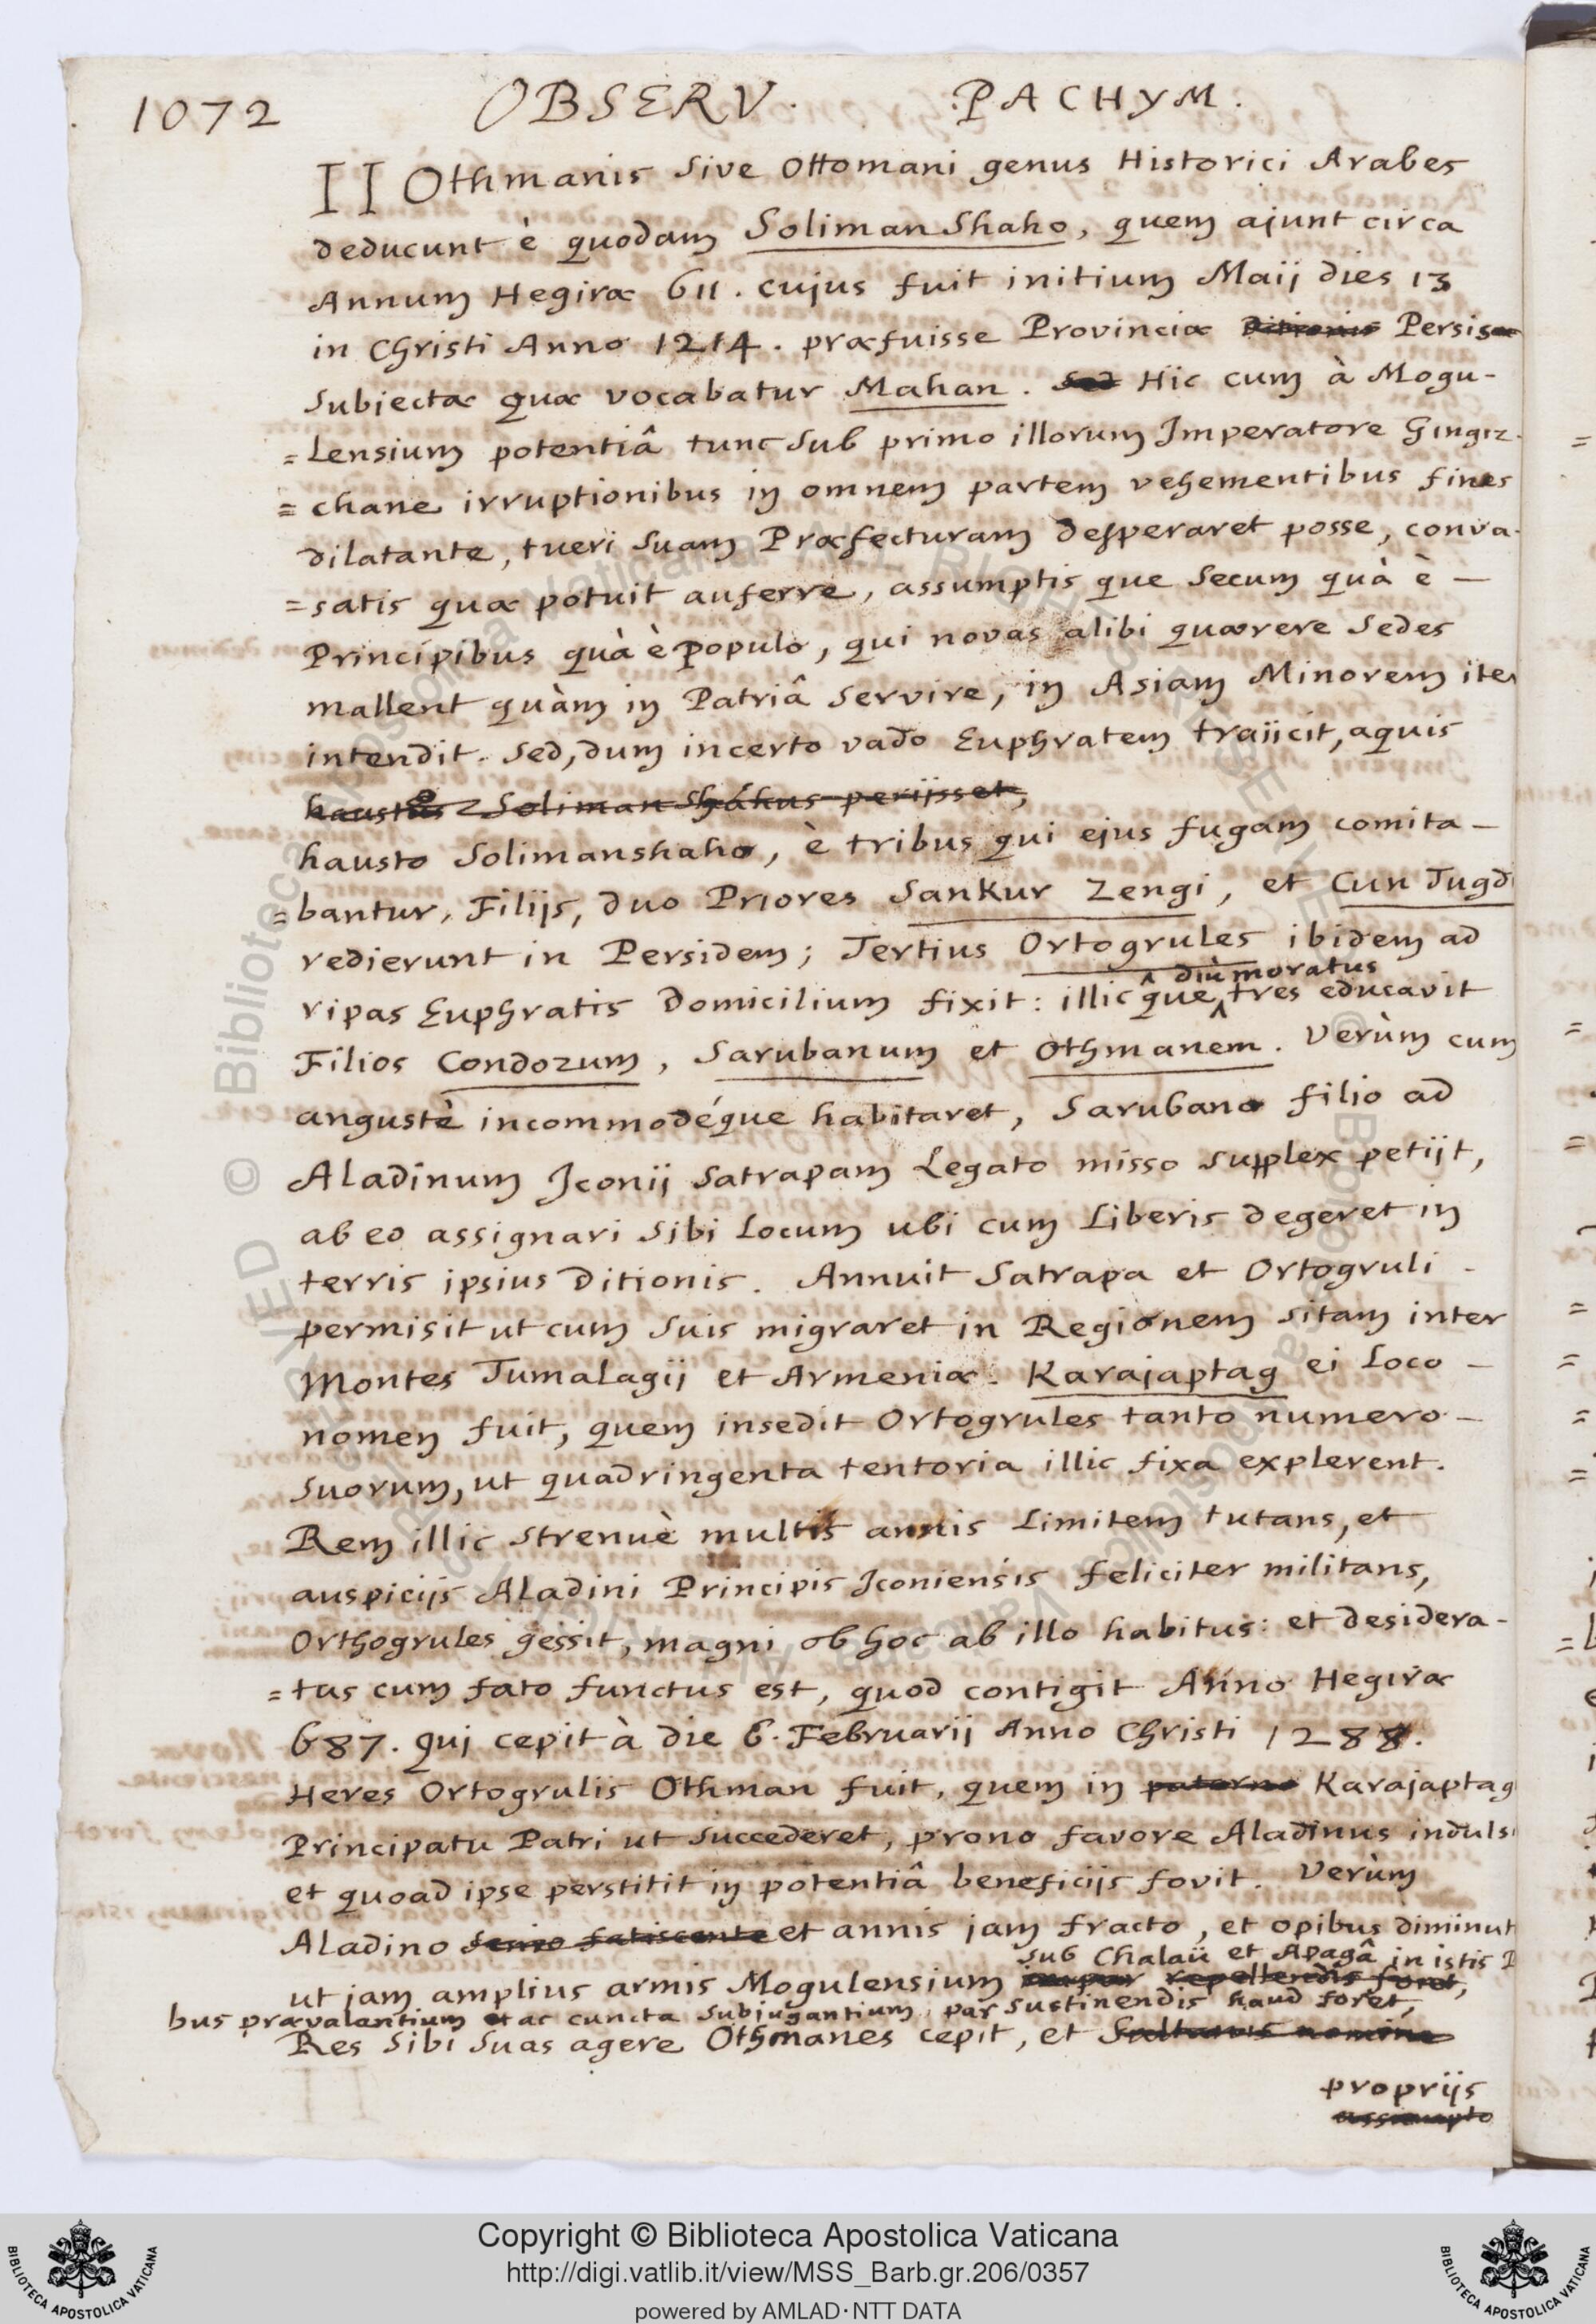 1072 OBSERV. PACHYM.
II Othmanis sive Ottomani genus Historici Arabes
deducunt è quodam Soliman Shaho, quem ajunt circa
Annum Hegiræ 611. cujus fuit initium Maij dies 13
in Christi Anno 1214. præfuisse Provinciæ Ditionis Persisæ
subiectæ quæ vocabatur Mahan. Sed Hic cum à Mogu-
=lensium potentiâ tunc sub primo illorum Imperatore Gingiz-
=chane irruptionibus in omnem partem vehementibus fines
dilatante, tueri suam Præfecturam desperaret posse, conva-
=satis quæ potuit auferre, assumptis que secum quà è —
Principibus quà è populo, qui novas alibi quærere sedes
mallent quàm in Patriâ servire, in Asiam Minorem iter
intendit. Sed, dum incerto vado Euphratem traiicit, aquis
haustus Soliman Sháhus perijsset,
hausto Solimanshaho, è tribus qui ejus fugam comita-
=bantur, Filijs, duo Priores Sankur Zengi, et Cun Tugdi
redierunt in Persidem; Tertius Ortogrules ibidem ad
ripas Euphratis domicilium fixit: illicque diù moratus tres educavit
Filios Condozum, Sarubanum et Othmanem. Verùm cum
angustè incommodéque habitaret, Sarubano filio ad
Aladinum Iconii Satrapam Legato misso supplex petijt,
ab eo assignari sibi locum ubi cum Liberis degeret in
terris ipsius Ditionis. Annuit Satrapa et Ortogruli -
permisit ut cum suis migraret in Regionem sitam inter
Montes Tumalagij et Armeniæ. Karajaptag ei loco —
nomen fuit, quem insedit Ortogrules tanto numero —
suorum, ut quadringenta tentoria illic fixa explerent.
Rem illic strenuè multis annis Limitem tutans, et
auspicijs Aladini Principis Iconiensis feliciter militans,
Orthogrules gessit, magni ob hoc ab illo habitus: et desidera-
=tus cum fato functus est, quod contigit Anno Hegiræ
687. qui cepit à die 6. Februarij Anno Christi 1288.
Heres Ortogrulis Othman fuit, quem in paterno Karajaptag
Principatu Patri ut succederet, prono favore Aladinus induls
et quoad ipse perstitit in potentiâ beneficijs fovit. Verùm
Aladino senio fatiscente et annis jam fracto, et opibus diminut
sub Chalaü et Apagâ in istis
ut jam amplius armis Mogulensium repellendis foret,
bus prævalantium et ac cuncta subjugantium, par sustinendis haud foret,
Res sibi suas agere Othmanes cepit, et Sultanis nomine
proprijs
assumpto
© Biblioteca Apostolica Vaticana ALL RIGHTS RESERVED
Copyright © Biblioteca Apostolica Vaticana
http://digi.vatlib.it/view/MSS_Barb.gr.206/0357
powered by AMLAD·NTT DATA
BIBLIOTECA APOSTOLICA VATICANA
BIBLIOTECA APOSTOLICA VATICANA